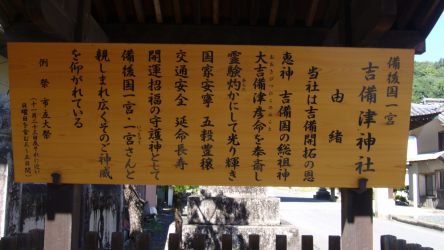 備後国一宮
吉備津神社
由緒
当社は吉備開拓の恩
恵神 吉備国の総祖神
おおきびつひこのみこと
大吉備津彦命を奉斎し
霊験灼かにして光り輝き
国家安寧 五穀豊穣
交通安全 延命長寿
開運招福の守護神として
備後国一宮・一宮さんと
親しまれ広くそのご神威
を仰がれている
例祭 市立大祭